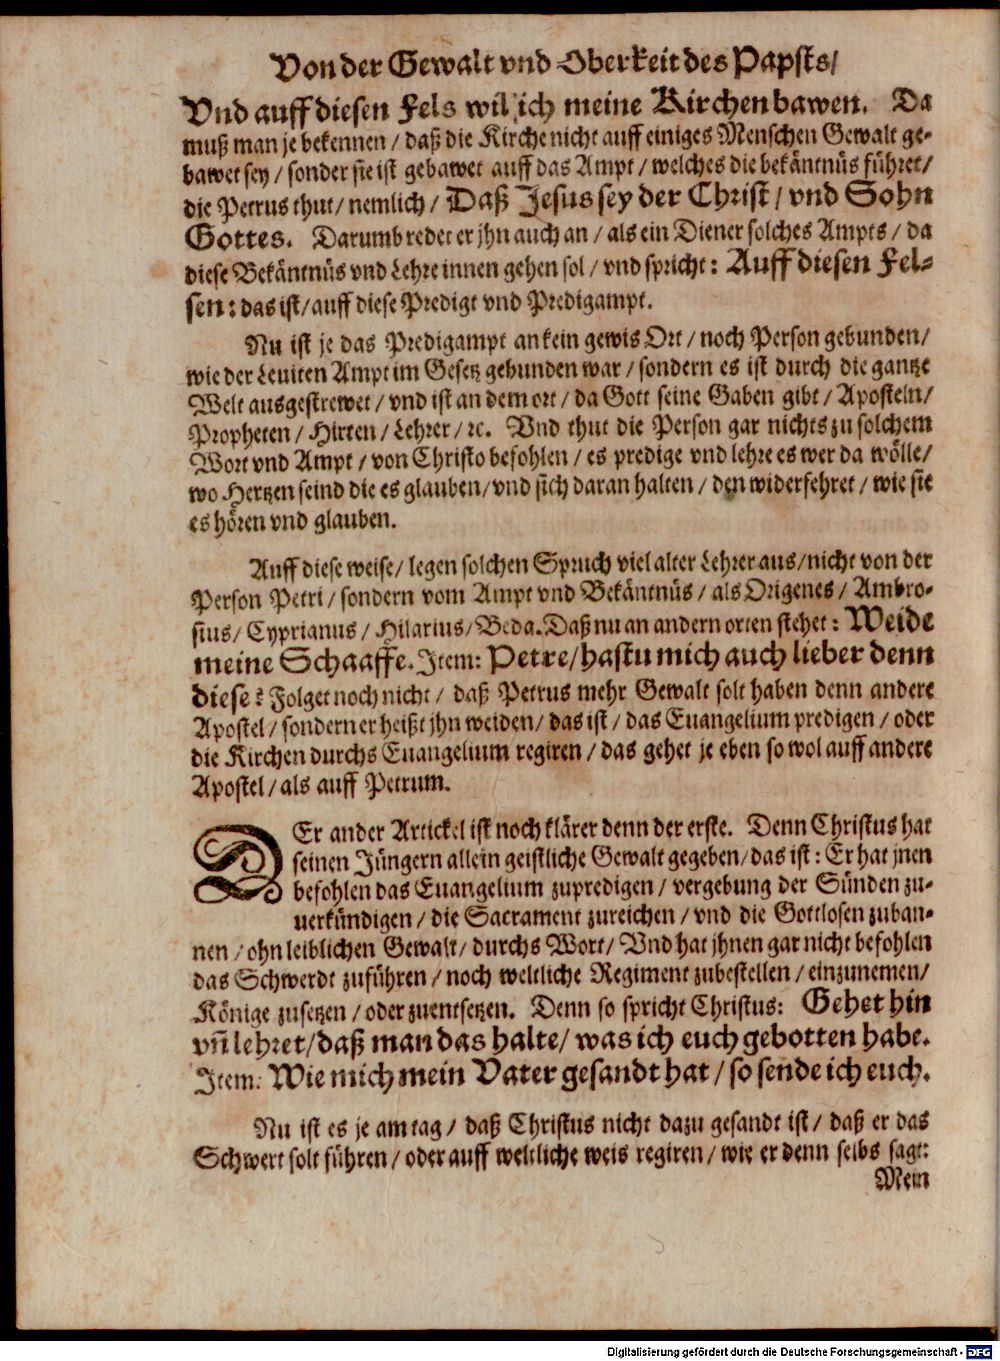 Von der Gewalt vnd Oberkeit des Papsts/
Vnd auff diesen Fels wil ich meine Kirchen bawen. Da
muß man je bekennen / daß die Kirche nicht auff einiges Menschen Gewalt ge-
bawet sey / sonder sie ist gebawet auff das Ampt / welches die bekäntnüs führet/
die Petrus thut / nemlich / Daß Jesus sey der Christ / vnd Sohn
Gottes. Darumb redet er jhn auch an / als ein Diener solches Ampts / da
diese Bekäntnüs vnd Lehre innen gehen sol / vnd spricht: Auff diesen Fel-
sen: das ist / auff diese Predigt vnd Predigampt.
Nu ist je das Predigampt an kein gewis Ort / noch Person gebunden/
wie der Leuiten Ampt im Gesetz gebunden war / sondern es ist durch die gantze
Welt ausgestrewet / vnd ist an dem ort / da Gott seine Gaben gibt / Aposteln/
Propheten / Hirten / Lehrer / ꝛc. Vnd thut die Person gar nichts zu solchem
Wort vnd Ampt / von Christo befohlen / es predige vnd lehre es wer da wölle/
wo Hertzen seind die es glauben / vnd sich daran halten / den widerfehret / wie sie
es hören vnd glauben.
Auff diese weise / legen solchen Spruch viel alter Lehrer aus / nicht von der
Person Petri / sondern vom Ampt vnd Bekäntnüs / als Origenes / Ambro-
sius / Cyprianus / Hilarius / Beda. Daß nu an andern orten stehet: Weide
meine Schaaffe. Item: Petre / hastu mich auch lieber denn
diese? Folget noch nicht / daß Petrus mehr Gewalt solt haben denn andere
Apostel / sondern er heißt jhn weiden / das ist / das Euangelium predigen / oder
die Kirchen durchs Euangelium regiren / das gehet je eben so wol auff andere
Apostel / als auff Petrum.
DEr ander Artickel ist noch klärer denn der erste. Denn Christus hat
seinen Jüngern allein geistliche Gewalt gegeben / das ist: Er hat jnen
befohlen das Euangelium zupredigen / vergebung der Sünden zu-
uerkündigen / die Sacrament zureichen / vnd die Gottlosen zuban-
nen / ohn leiblichen Gewalt / durchs Wort / Vnd hat jhnen gar nicht befohlen
das Schwerdt zuführen / noch weltliche Regiment zubestellen / einzunemen/
Könige zusetzen / oder zuentsetzen. Denn so spricht Christus: Gehet hin
vn̄ lehret / daß man das halte / was ich euch gebotten habe.
Item: Wie mich mein Vater gesandt hat / so sende ich euch.
Nu ist es je am tag / daß Christus nicht dazu gesandt ist / daß er das
Schwert solt führen / oder auff weltliche weis regiren / wie er denn selbs sagt:
Mein
Digitalisierung gefördert durch die Deutsche Forschungsgemeinschaft - DFG